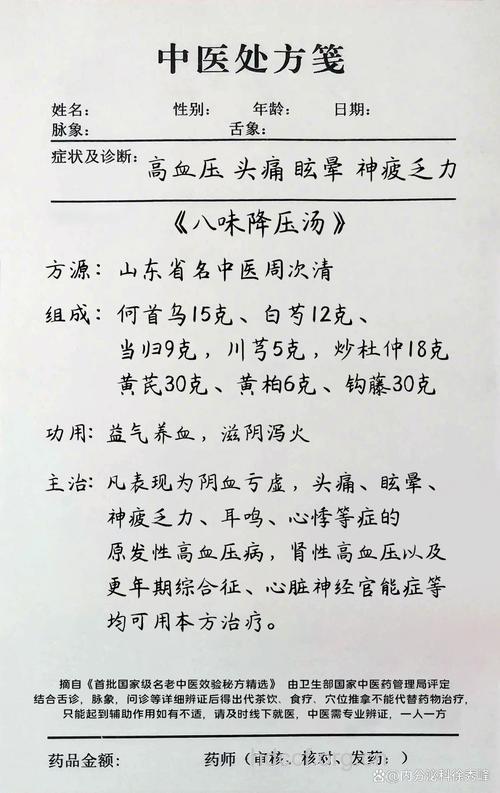 中医处方笺
姓名： 性别： 年龄： 日期：
脉象： 舌象：
症状及诊断：高血压 头痛 眩晕 神疲乏力
《八味降压汤》
方源：山东省名中医周次清
组成：何首乌15克、白芍12克、
当归9克，川芎5克，炒杜仲18克
黄芪30克、黄柏6克、钩藤30克
功用：益气养血，滋阴泻火
主治：凡表现为阴血亏虚，头痛、眩晕、
神疲乏力、耳鸣、心悸等症的
原发性高血压病，肾性高血压以及
更年期综合征、心脏神经官能症等
均可用本方治疗。
摘自《首批国家级名老中医效验秘方精选》 由卫生部国家中医药管理局评定
结合舌诊，脉象，问诊等详细辨证后得出代茶饮、食疗、穴位推拿不能代替药物治疗，
只能起到辅助作用如有不适，请及时线下就医，中医需专业辨证，一人一方
药品金额： 药师（审核、核对、发药：）
@内分泌科徐秀峰